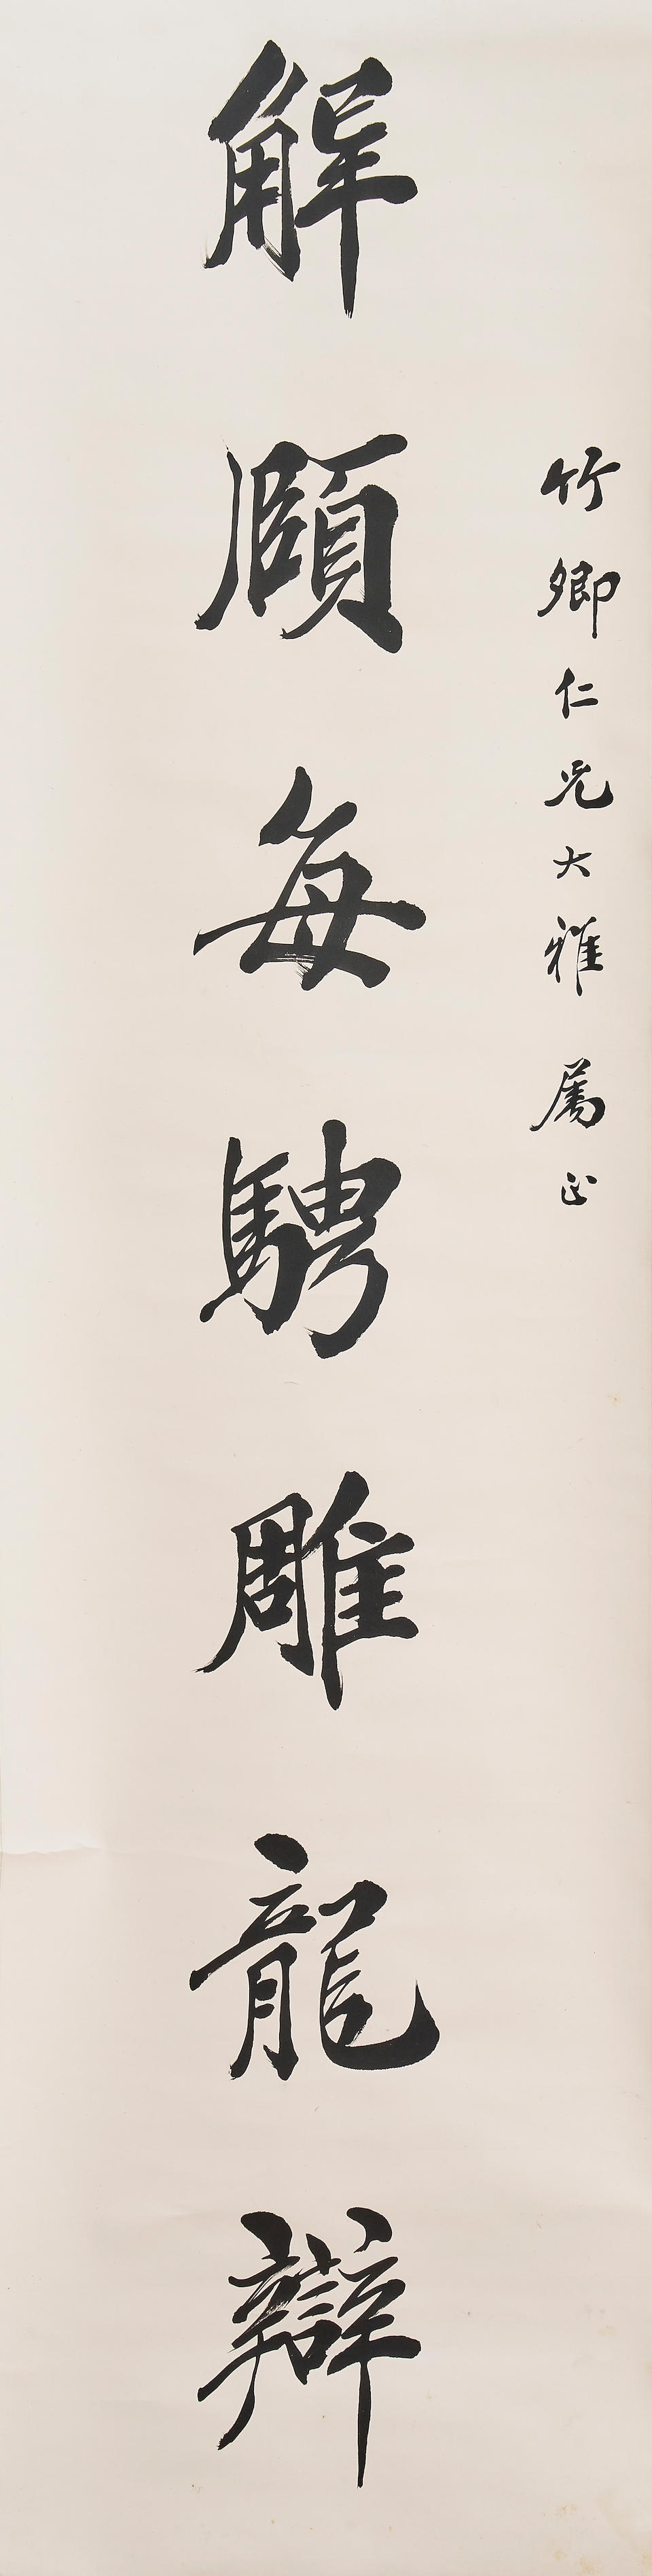 竹卿仁兄大雅 属正
解頤每騁雕龍辯